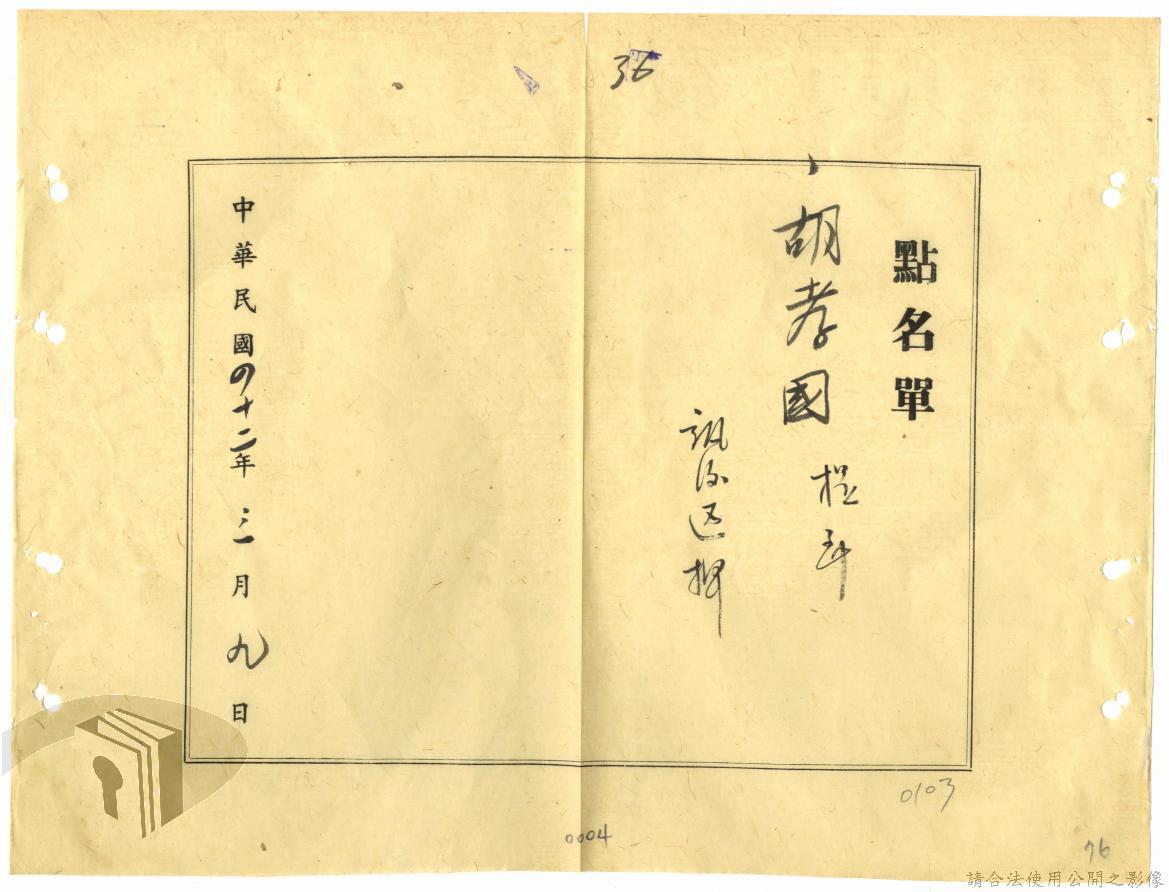 36
點名單
胡孝國
提到
訊後還押
中華民國四十二年三月九日
0103
0004
76
請合法使用公開之影像